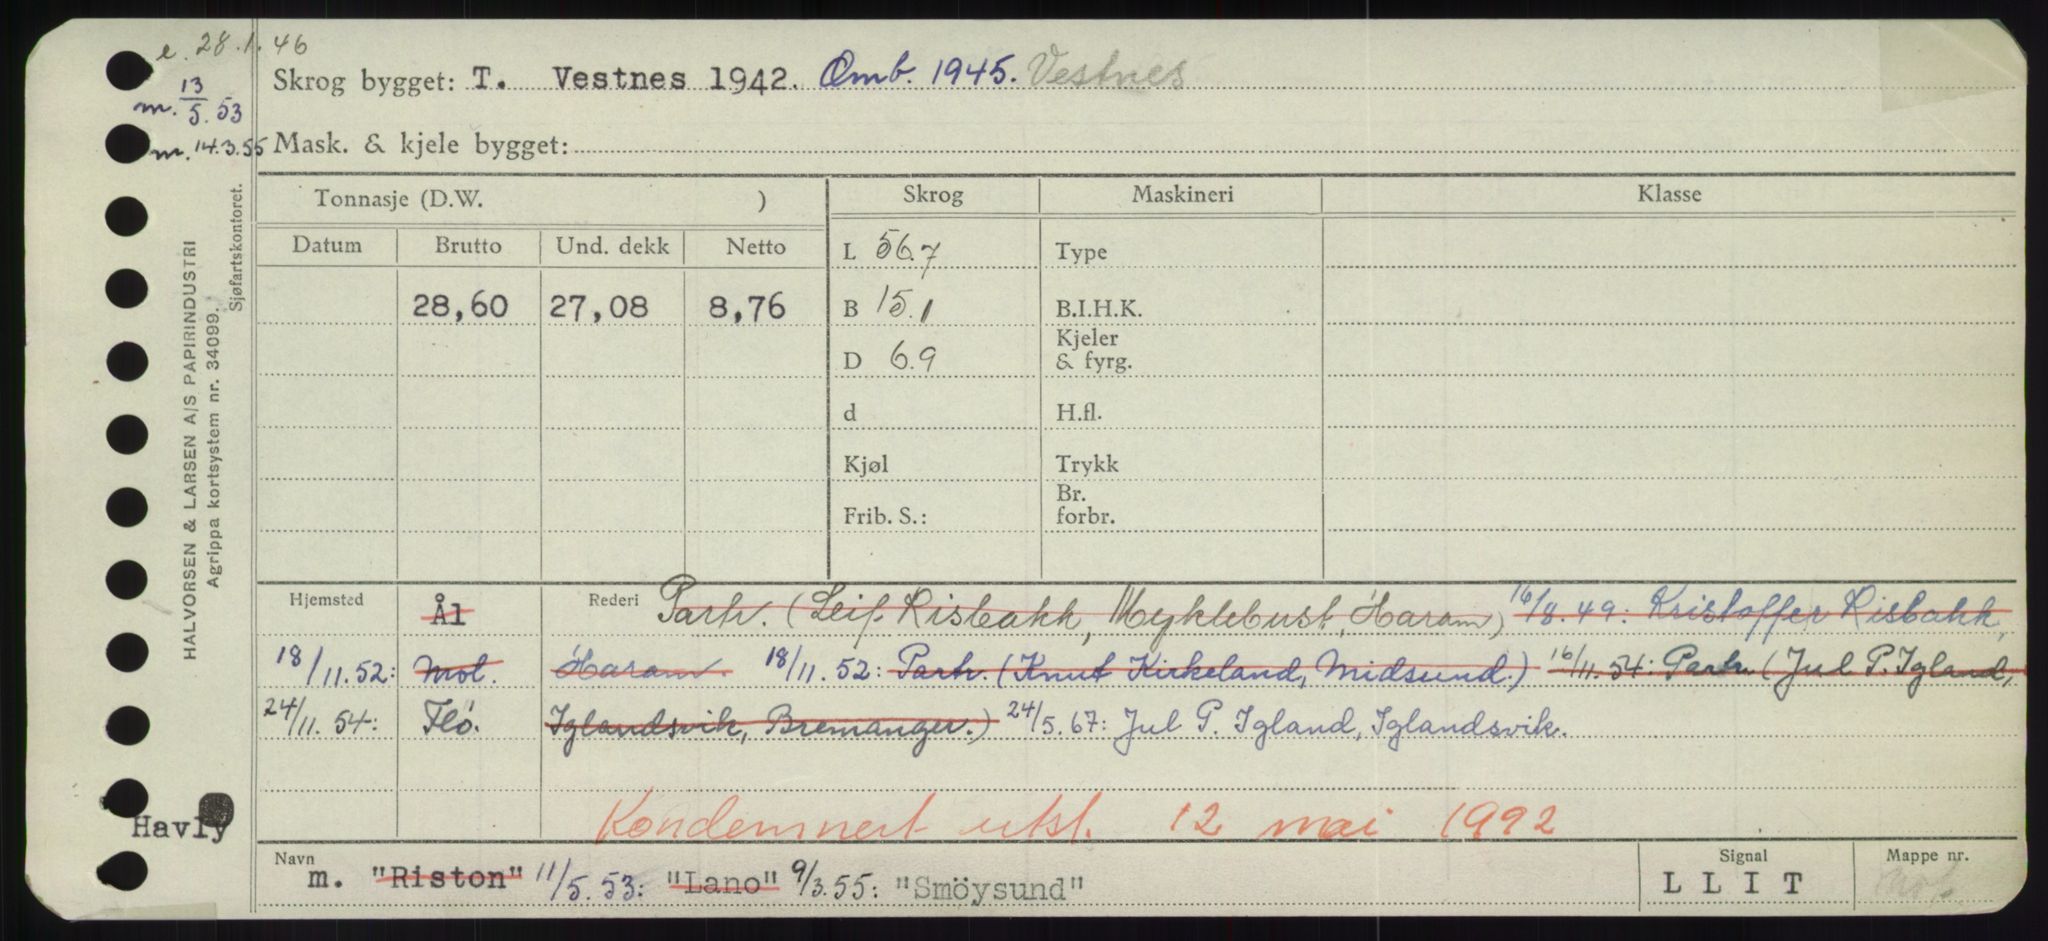 e. 28.1.46
m. 13/5.53
m. 14.3.55
Skrog bygget: T. Vestnes 1942. Omb. 1945. Vestnes
Mask. & kjele bygget:
HALVORSEN & LARSEN A/S PAPIRINDUSTRI
Agrippa kortsystem nr. 34099.
Sjøfartskontoret.
Tonnasje (D.W. )
Skrog
Maskineri
Klasse
Datum Brutto Und. dekk Netto
28,60 27,08 8,76
L 56.7
B 15.1
D 6.9
d
Kjøl
Frib. S.:
Type
B.I.H.K.
Kjeler
& fyrg.
H.fl.
Trykk
Br.
forbr.
Hjemsted Ål Rederi Partr. (Leif Risbakk, Myklebust, Haram) 16/8.49: Kristoffer Risbakk,
18/11.52: Mol. Haram. 18/11.52: Partr. (Knut Kirkeland, Midsund.) 16/11.54: Partr (Jul P. Igland,
24/11.54: Flö. Iglandsvik, Bremanger.) 24/5.67: Jul P. Igland, Iglandsvik.
Kondemnert utsl. 12 mai 1992
Havly
Navn
m. "Riston" 11/5.53: "Lano" 9/3.55: "Smöysund"
Signal
LLIT
Mappe nr.